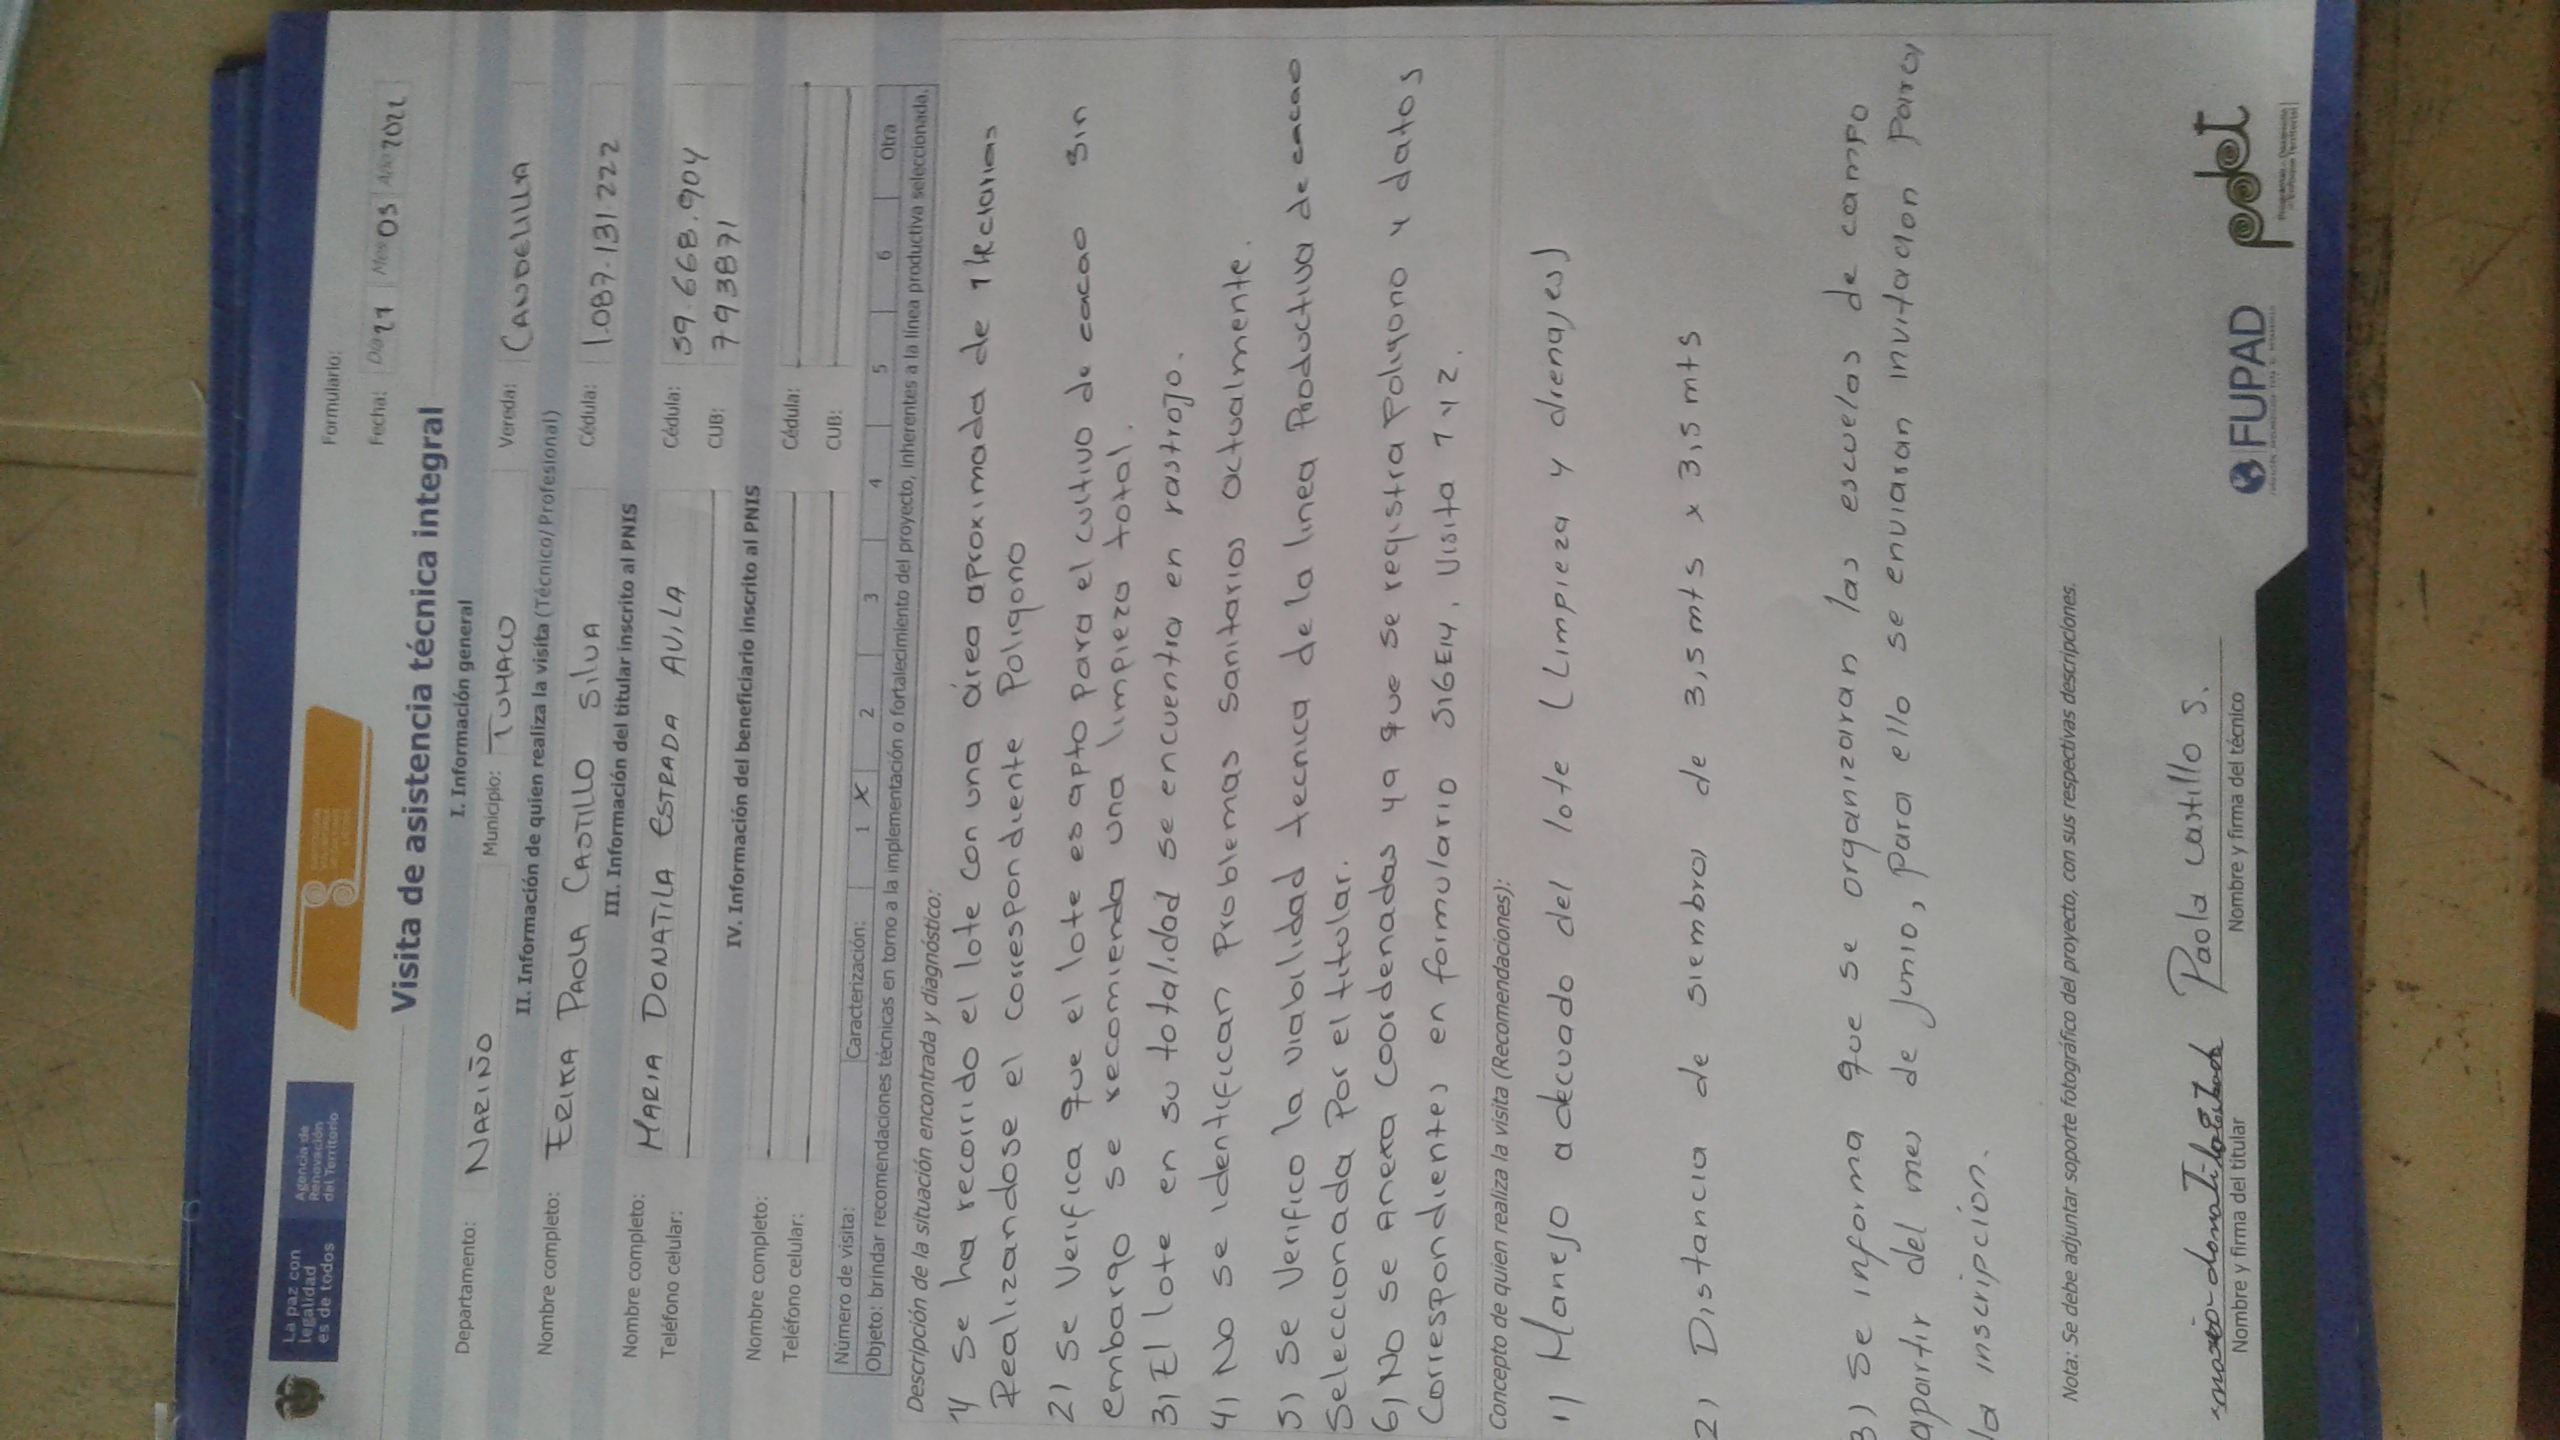 La paz con
legalidad
es de todos
Agencia de
Renovación
del Territorio
Formulario:
Fecha: Día 21 Mes 03 Año 2021
Visita de asistencia técnica integral
I. Información general
Departamento: NARIÑO Municipio: TUMACO Vereda: CANDELILLA
II. Información de quien realiza la visita (Técnico/Profesional)
Nombre completo: ERIKA PAOLA CASTILLO SILVA Cédula: 1.087.131222
III. Información del titular inscrito al PNIS
Nombre completo: MARIA DONATILA ESTRADA AVILA Cédula: 59.668.904
Teléfono celular: CUB: 793871
IV. Información del beneficiario inscrito al PNIS
Nombre completo: Cédula:
Teléfono celular: CUB:
Número de visita: Caracterización: 1 X 2 3 4 5 6 Otra
Objeto: brindar recomendaciones técnicas en torno a la implementación o fortalecimiento del proyecto, inherentes a la línea productiva seleccionada.
Descripción de la situación encontrada y diagnóstico:
1) Se ha recorrido el lote con una área aproximada de 1 Hectarias
Realizandose el correspondiente Poligono
2) Se Verifica que el lote es apto para el cultivo de cacao sin
embargo se recomienda una limpieza total.
3) El lote en su totalidad se encuentra en rastrojo.
4) No se identifican Problemas Sanitarios actualmente.
5) Se Verifico la viabilidad tecnica de la linea Productiva de cacao
Seleccionada Por el titular.
6) No se anexa Coordenadas ya que se registra Poligono y datos
Correspondientes en formulario SIGEIN, Visita 1 y 2.
Concepto de quien realiza la visita (Recomendaciones):
1) Manejo adecuado del lote (Limpieza y drenajes)
2) Distancia de siembra de 3,5 mts x 3,5 mts
3) Se informa que se organizaran las escuelas de campo
apartir del mes de Junio, Para ello se enviaran invitacion Para
la inscripcion.
Nota: Se debe adjuntar soporte fotográfico del proyecto, con sus respectivas descripciones.
Paola Castillo S.
Nombre y firma del titular Nombre y firma del técnico
FUPAD
pdet